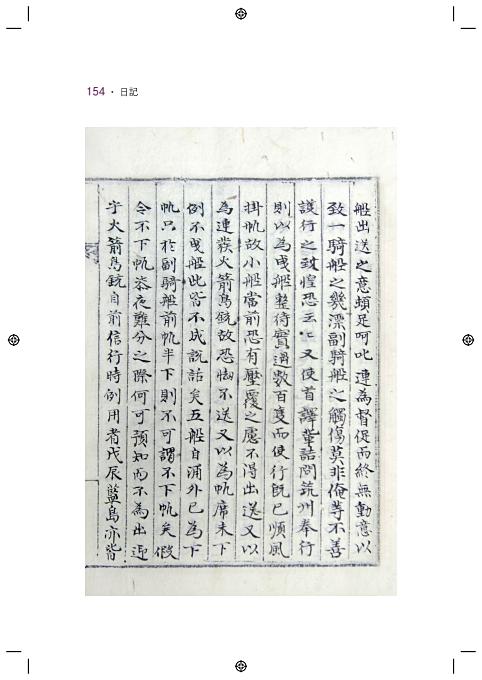 154 · 日記
船出送之意頓足呵叱連為督促而終無動意以
致一騎船之幾漂副騎船之觸傷莫非俺等不善
護行之致惶恐云云又使首譯輩詰問茲州奉行
則以為曳船整待實過數百度而使行旣已順風
掛帆故小船當前恐有壓覆之慮不得出送又以
為連襆火箭鳥銃故恐怖不送又以為帆席未下
例不曳船此皆不成說話矣五船自涌外已為下
帆只於副騎船前帆半下則不可謂不下帆矣假
令不下帆深夜難分之際何可預知而不為出迎
乎火箭鳥銃自前信行時例用者戊辰藍島亦皆